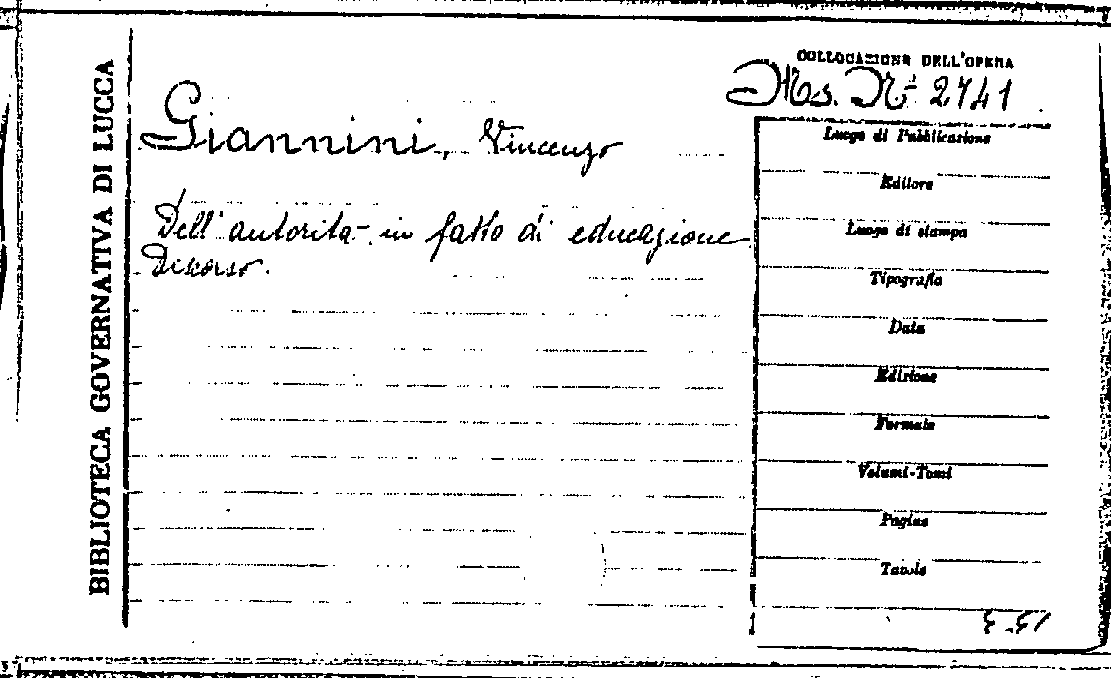 BIBLIOTECA GOVERNATIVA DI LUCCA
COLLOCAZIONE DELL'OPERA
Ms. N° 2741
Giannini, Vincenzo
Dell'autorità in fatto di educazione
Discorso.
Luogo di Pubblicazione
Editore
Luogo di stampa
Tipografia
Data
Edizione
Formato
Volumi-Tomi
Pagine
Tavole